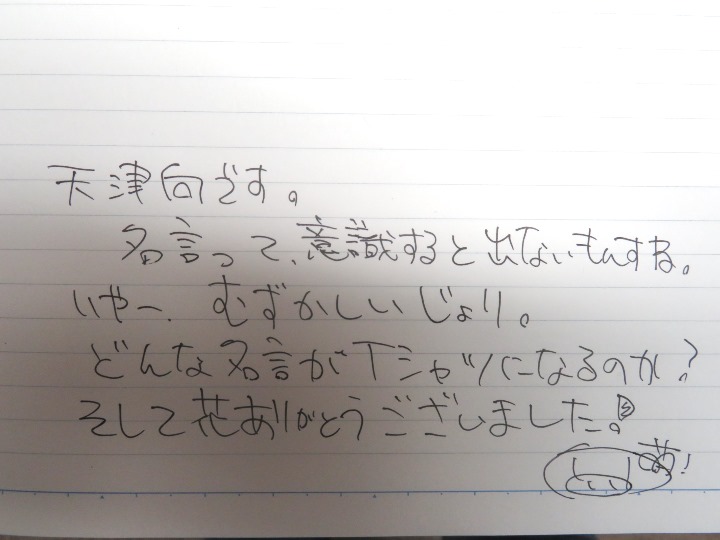 天津向です。
名言って、意識すると出ないもんすね。
いやー、むずかしいじょり。
どんな名言がTシャツになるのか?
そして花ありがとうございました。